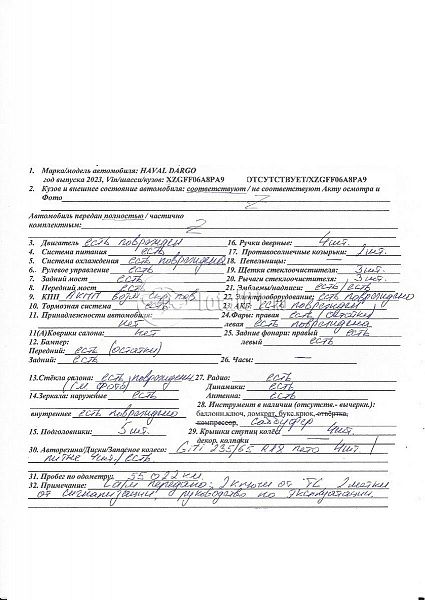 1. Марка/модель автомобиля: HAVAL DARGO
год выпуска 2023, Vin/шасси/кузов: XZGFF06A8PA9 ОТСУТСТВУЕТ/XZGFF06A8PA9
2. Кузов и внешнее состояние автомобиля: соответствуют / не соответствуют Акту осмотра и
Фото
Автомобиль передан полностью / частично
комплектным:
3. Двигатель есть поврежден 16. Ручка дверные: 4 шт.
4. Система питания есть 17. Противосолнечные козырьки: 1 шт.
5. Система охлаждения есть повреждена 18. Пепельницы: —
6. Рулевое управление есть 19. Щетки стеклоочистителя: 3 шт.
7. Задний мост есть 20. Рычаги стеклоочистителя: 3 шт.
8. Передний мост есть 21. Эмблемы/надписи: есть/есть
9. КПП АКПП 22. Электрооборудование: есть повреждено
10. Тормозная система есть 23. АКБ: есть поврежден
11. Принадлежности автомобиля: 24.Фары: правая есть (остатки)
нет левая есть повреждена
11(А)Коврики салона: нет 25. Задние фонари: правый есть
12. Бампер: левый есть
Передний: есть (остатки)
Задний: есть 26. Часы: —
13.Стёкла салона: есть повреждены 27. Радио: есть
(см фото) Динамики: есть
14.Зеркала: наружные есть Антенна: есть
28. Инструмент в наличии (отсутств.- вычерки.):
внутреннее есть повреждено баллонн.ключ, домкрат, букс.крюк, отвёртка,
компрессор, сабвуфер
15. Подголовники: 5 шт. 29. Крышки ступиц колёс 4 шт.
декор. колпаки —
30. Авторезина/Диски/Запасное колесо: GiTi 235/65 R18 лето 4 шт /
литые 4 шт / есть
31. Пробег по одометру: 55 022 км.
32. Примечание: передано: 2 ключа от ТС 2 метки
от сигнализации руководство по эксплуатации.